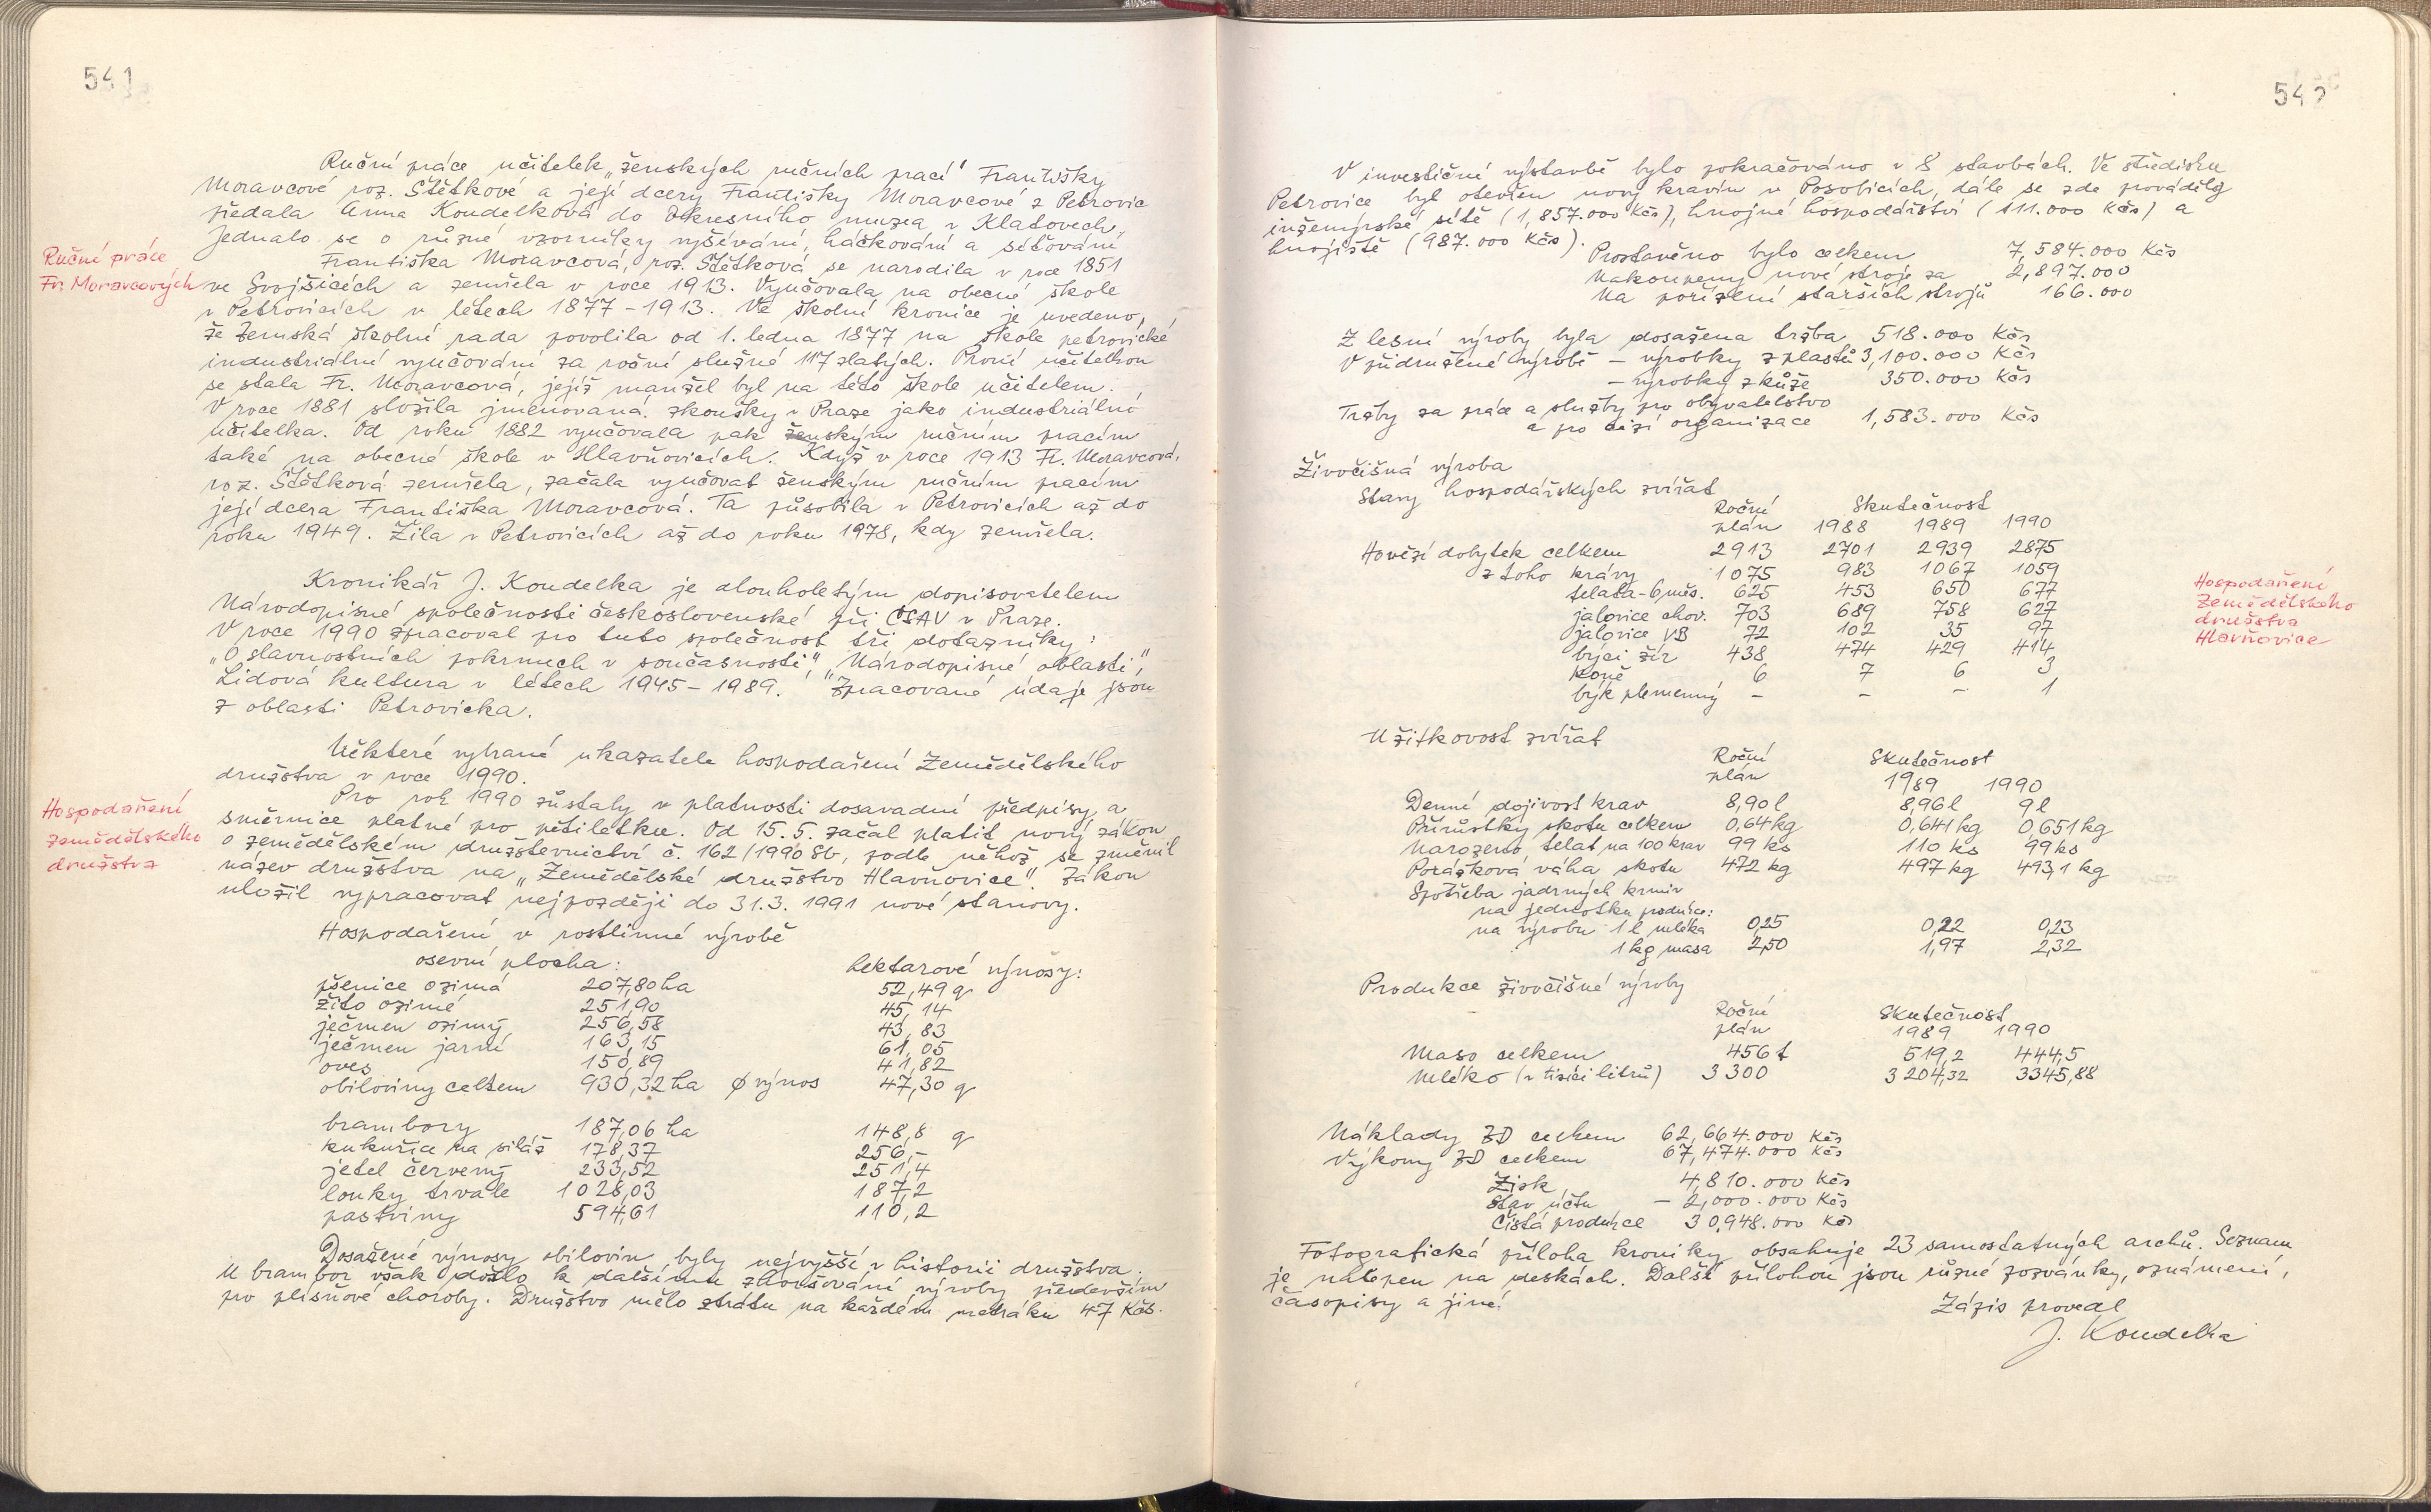 541
Ruční práce učitelek „ženských ručních prací" Františky
Moravcové roz. Štětkové a její dcery Františky Moravcové z Petrovic
předala Anna Koudelková do Okresního muzea v Klatovech.
Jednalo se o různé vzorníky vyšívání, háčkování a síťování
Ruční práce
Fr. Moravcových
Františka Moravcová, roz. Štětková se narodila v roce 1851
ve Svojšicích a zemřela v roce 1913. Vyučovala na obecné škole
v Petrovicích v létech 1877-1913. Ve školní kronice je uvedeno,
že Zemská školní rada povolila od 1. ledna 1877 na škole petrovické
industriální vyučování za roční služné 117 zlatých. První učitelkou
se stala Fr. Moravcová, jejíž manžel byl na této škole učitelem.
V roce 1881 složila jmenovaná zkoušky v Praze jako industriální
učitelka. Od roku 1882 vyučovala pak ženským ručním pracím
také na obecné škole v Hlavňovicích. Když v roce 1913 Fr. Moravcová,
roz. Štětková zemřela, začala vyučovat ženským ručním pracím
její dcera Františka Moravcová. Ta působila v Petrovicích až do
roku 1949. Žila v Petrovicích až do roku 1978, kdy zemřela.
Kronikář J. Koudelka je dlouholetým dopisovatelem
Národopisné společnosti československé při ČSAV v Praze.
V roce 1990 zpracoval pro tuto společnost tři dotazníky:
„O slavnostních pokrmech v současnosti", „Národopisné oblasti",
Lidová kultura v létech 1945-1989. "Zpracované údaje jsou
z oblasti Petrovicka.
Některé vybrané ukazatele hospodaření Zemědělského
družstva v roce 1990.
Hospodaření
zemědělského
družstva
Pro rok 1990 zůstaly v platnosti dosavadní předpisy a
směrnice platné pro pětiletku. Od 15.5. začal platit nový zákon
o zemědělském družstevnictví č. 162/1990 Sb, podle něhož se změnil
název družstva na „Zemědělské družstvo Hlavňovice". Zákon
uložil vypracovat nejpozději do 31.3. 1991 nové stanovy.
Hospodaření v rostlinné výrobě
osevní plocha: hektarové výnosy:
pšenice ozimá 207,80 ha 52,49 q
žito ozimé 251,90 45,14
ječmen ozimý 256,58 43,83
ječmen jarní 163,15 61,05
oves 150,89 41,82
obiloviny celkem 930,32 ha Ø výnos 47,30 q
brambory 187,06 ha 148,8 q
kukuřice na siláž 178,37 256,-
jetel červený 233,52 251,4
louky trvale 1028,03 187,2
pastviny 594,61 110,2
Dosažené výnosy obilovin byly nejvyšší v historii družstva.
U brambor však došlo k dalšímu zhoršování výroby především
pro plísňové choroby. Družstvo mělo ztrátu na každém metráku 47 Kčs.
542
V investiční výstavbě bylo pokračováno v 8 stavbách. Ve středisku
Petrovice byl otevřen nový kravín v Posobicích, dále se zde prováděly
inženýrské sítě (1,857.000 Kčs), hnojné hospodářství (111.000 Kčs) a
hnojiště (987.000 Kčs).
Prostavěno bylo celkem 7,584.000 Kčs
Nakoupeny nové stroje za 2,897.000
Na pořízení starších strojů 166.000
Z lesní výroby byla dosažena tržba 518.000 Kčs
V přidružené výrobě - výrobky z plastů 3,100.000 Kčs
- výrobky z kůže 350.000 Kčs
Tržby za práce a služby pro obyvatelstvo
a pro cizí organizace 1,583.000 Kčs
Živočišná výroba
Stavy hospodářských zvířat
Roční Skutečnost
plán 1988 1989 1990
Hovězí dobytek celkem 2913 2701 2939 2875
z toho krávy 1075 983 1067 1059
telata-6 měs. 625 453 650 677
jalovice chov. 703 689 758 627
jalovice VB 72 102 35 97
býci žír 438 474 429 414
Koně 6 7 6 3
býk plemenný - - - 1
Hospodaření
Zemědělského
družstva
Hlavňovice
Užitkovost zvířat
Roční Skutečnost
plán 1989 1990
Denní dojivost krav 8,90 l 8,96 l 9 l
Přírůstky skotu celkem 0,64 kg 0,641 kg 0,651 kg
Narozeno telat na 100 krav 99 ks 110 ks 99 ks
Porážková váha skotu 472 kg 497 kg 493,1 kg
Spotřeba jadrných krmiv
na jednotku produkce:
na výrobu 1 l mléka 0,25 0,22 0,23
1 kg masa 2,50 1,97 2,32
Produkce živočišné výroby
Roční Skutečnost
plán 1989 1990
Maso celkem 456 t 519,2 444,5
Mléko (v tisíci litrů) 3 300 3 204,32 3345,88
Náklady ZD celkem 62,664.000 Kčs
Výkony ZD celkem 67,474.000 Kčs
Zisk 4,810.000 Kčs
Stav účtu - 2,000.000 Kčs
Čistá produkce 30,948.000 Kčs
Fotografická příloha kroniky obsahuje 23 samostatných archů. Seznam
je nalepen na deskách. Další přílohou jsou různé pozvánky, oznámení,
časopisy a jiné.
Zápis provedl
J. Koudelka